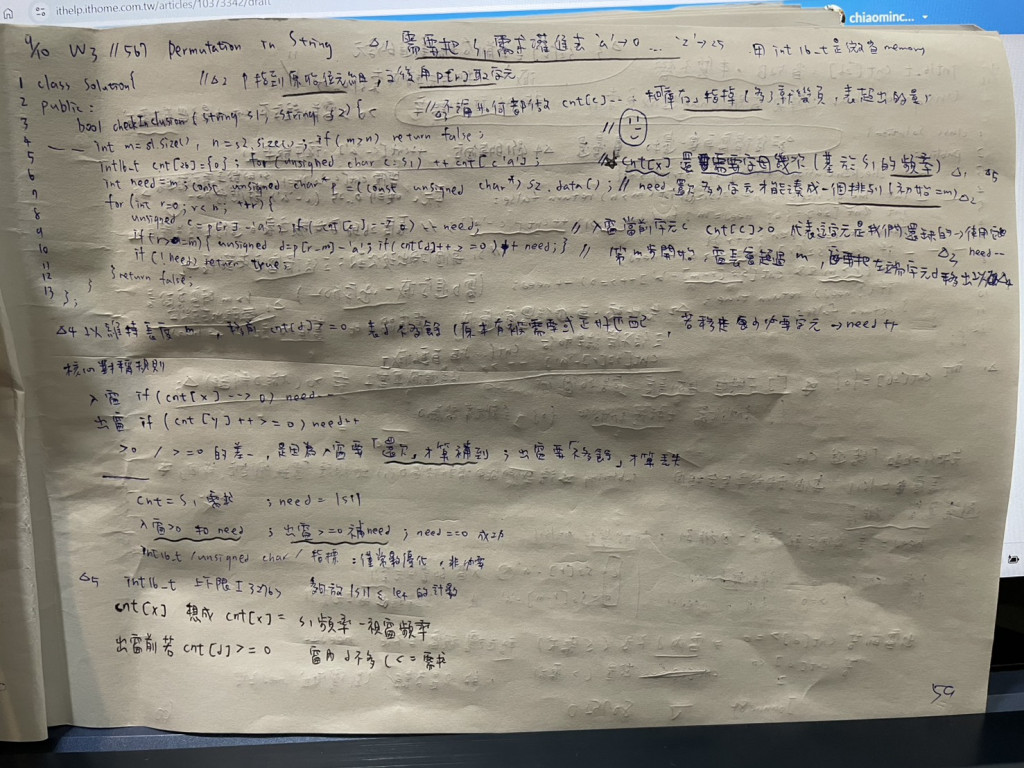 ithelp.ithome.com.tw/articles/10373342/draft
chiaominc...
9/10 W3 // 567 Permutation in String △1 需要把 s1 需求灌進去 'a'→0 ... 'z'→25 用 int 16_t 是微省 memory
1 class Solution{ //△2 p 指到原始位元 用 p[r] 取字元
2 public: // 不論如何都做 cnt[c]--
3 bool checkInclusion (string s1, string s2) {
4 int m=s1.size(), n=s2.size(); if(m>n) return false;
5 int16_t cnt[26]={0}; for (unsigned char c:s1) ++cnt[c-'a']; // cnt[x] 還需要字母幾次 (基於 s1 的頻率) △1 △5
6 int need=m; const unsigned char* p = (const unsigned char*) s2.data(); // need 還差多少字元才能湊成一個排列 (初始=m) △2
7 for(int r=0; r<n; ++r){
8 unsigned c=p[r]-'a'; if(cnt[c]-->0) --need; // 入窗當前字元 c cnt[c]>0 代表這字元是我們還缺的→使用它 △3 need--
9 if(r>=m){ unsigned d=p[r-m]-'a'; if(cnt[d]++>=0) ++need;} // 第 m 步開始, 窗長會超過 m, 需要把左端字元 d 移出 △4
10 if(!need) return true;
11 }
12 return false;
13 }
};
△4 以維持長度 m, 移前 cnt[d]>=0 表示不多餘 (原本有被需要或正好匹配, 若移走會少必要字元 → need++
核心對稱規則
入窗 if (cnt[x]-->0) need--
出窗 if (cnt[y]++>=0) need++
>0 / >=0 的差, 是因為入窗要「還欠」才算補到; 出窗要「不多餘」才算丟失
cnt=s1 需求 ; need=|s1|
入窗>0 扣 need ; 出窗>=0 補 need ; need==0 成功
int16_t / unsigned char / 指標 : 僅常數優化, 非必要
△5 int16_t 上下限 ± 32767 夠放 |s1| ≤ 1e4 的計數
cnt[x] 想成 cnt[x] = s1 頻率 - 視窗頻率
出窗前若 cnt[d]>=0 窗內 d 不多 (<= 需求
59